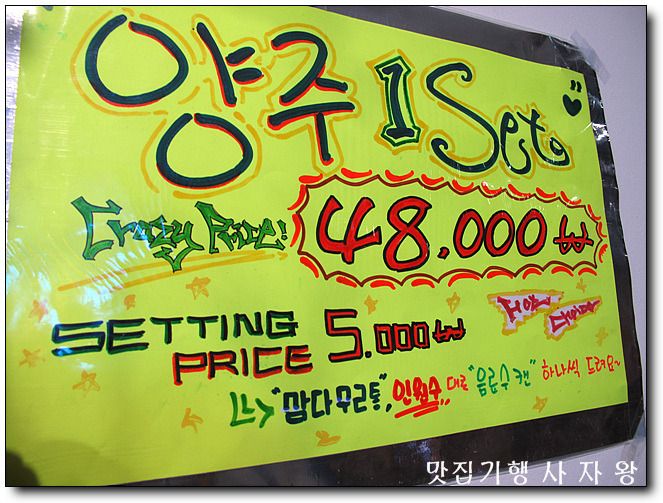 양주 1 Set
Crazy Price! 48.000₩
SETTING PRICE 5.000₩
"맘다무르통", 인원수 대로 "음료수 캔" 하나씩 드려요~
맛집기행 사자왕